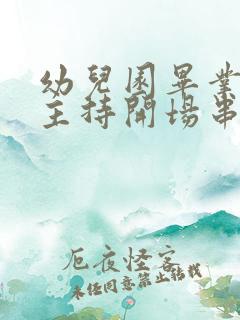 幼兒園畢業
主持開場串
厄夜怪客
未經同意禁止轉載